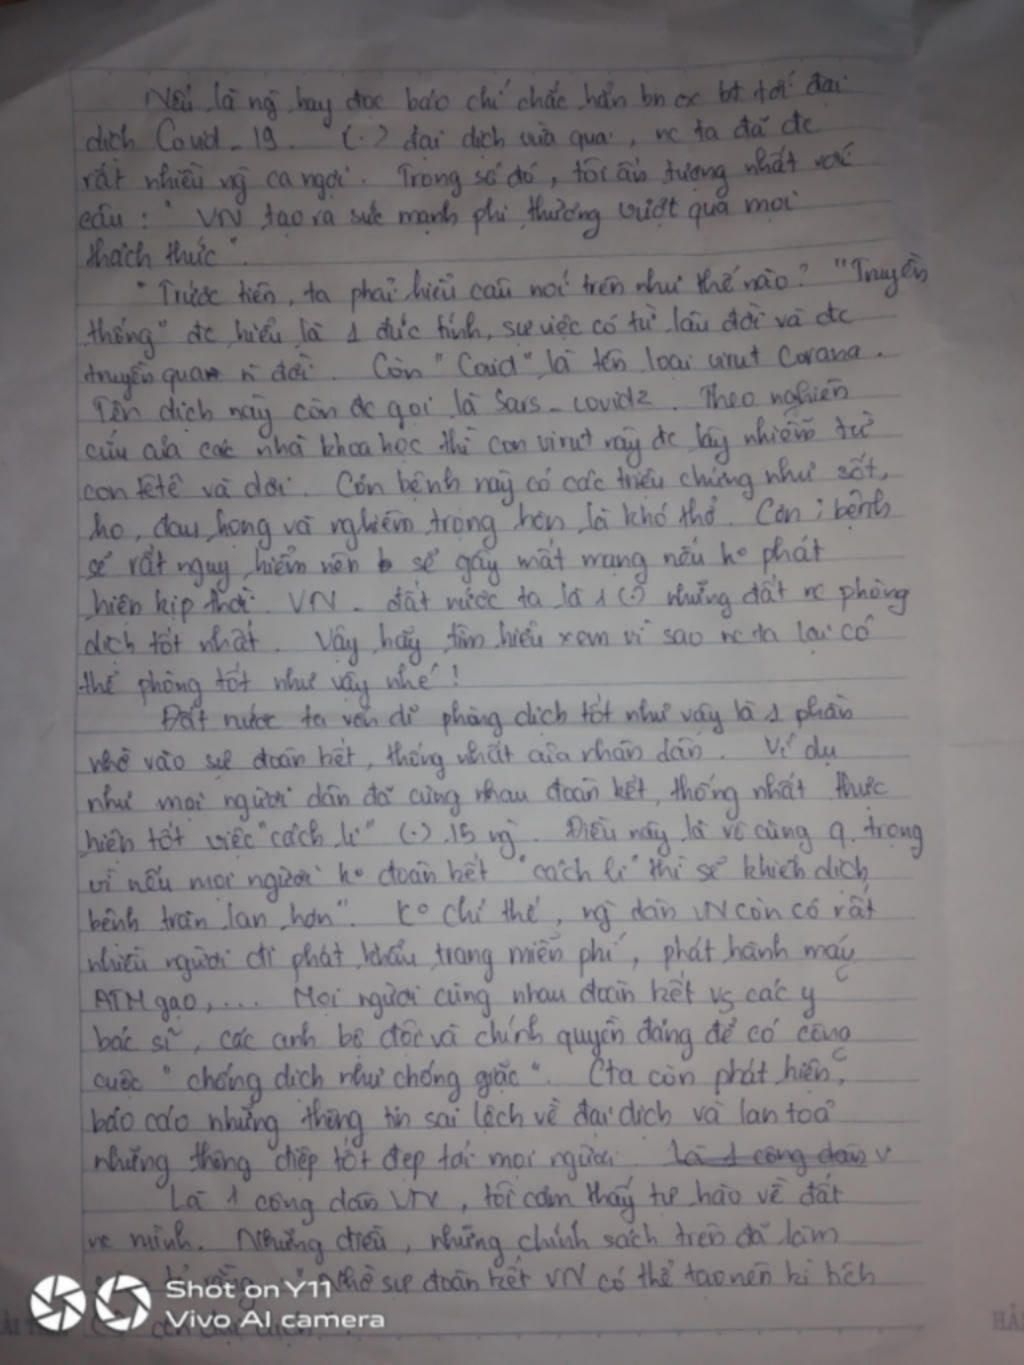 Nếu là ng hay đọc báo chí chắc hẳn bn đx bt tới đại
dịch Covid_19. (.) đại dịch vừa qua, nc ta đã đc
rất nhiều ng ca ngợi. Trong số đó, tôi ấn tượng nhất với
câu: " VN tạo ra sức mạnh phi thường vượt qua mọi
thách thức".
"Trước tiên, ta phải hiểu câu nói trên như thế nào? "Truyền
thống" đc hiểu là 1 đức tính, sự việc có từ lâu đời và đc
truyền qua n đời. Còn "Covid" là tên loại virut Corana.
Tên dịch này còn đc gọi là Sars_covid2. Theo nghiên
cứu của các nhà khoa học thì con virut này đc lây nhiễm từ
con têtê và dơi. Cơn bệnh này có các triệu chứng như sốt,
ho, đau họng và nghiêm trọng hơn là khó thở. Căn bệnh
sẽ rất nguy hiểm nên sẽ gây mất mạng nếu ko phát
hiện kịp thời. VN - đất nước ta là 1 (.) những đất nc phòng
dịch tốt nhất. Vậy hãy tìm hiểu xem vì sao nc ta lại có
thể phòng tốt như vậy nhé!
Đất nước ta vốn dĩ phòng dịch tốt như vậy là 1 phần
nhờ vào sự đoàn kết, thống nhất của nhân dân. Ví dụ
như mọi người dân đã cùng nhau đoàn kết, thống nhất thực
hiện tốt việc "cách li" (.) 15 ng. Điều này là vô cùng q. trọng
vì nếu mọi người ko đoàn kết "cách li" thì sẽ khiến dịch
bệnh tràn lan hơn". Ko chỉ thế, ng dân VN còn có rất
nhiều người đi phát khẩu trang miễn phí, phát hành máy
ATM gạo,.... Mọi người cùng nhau đoàn kết vs các y
bác sĩ, các anh bộ đội và chính quyền đảng để có công
cuộc "chống dịch như chống giặc". Cta còn phát hiện,
báo cáo những thông tin sai lệch về đại dịch và lan toả
những thông điệp tốt đẹp tới mọi người. Là 1 công dân V
Là 1 công dân VN, tôi cảm thấy tự hào về đất
nc mình. Những điều, những chính sách trên đã làm
nhờ sự đoàn kết VN có thể tạo nên kì tích
Shot on Y11
Vivo AI camera